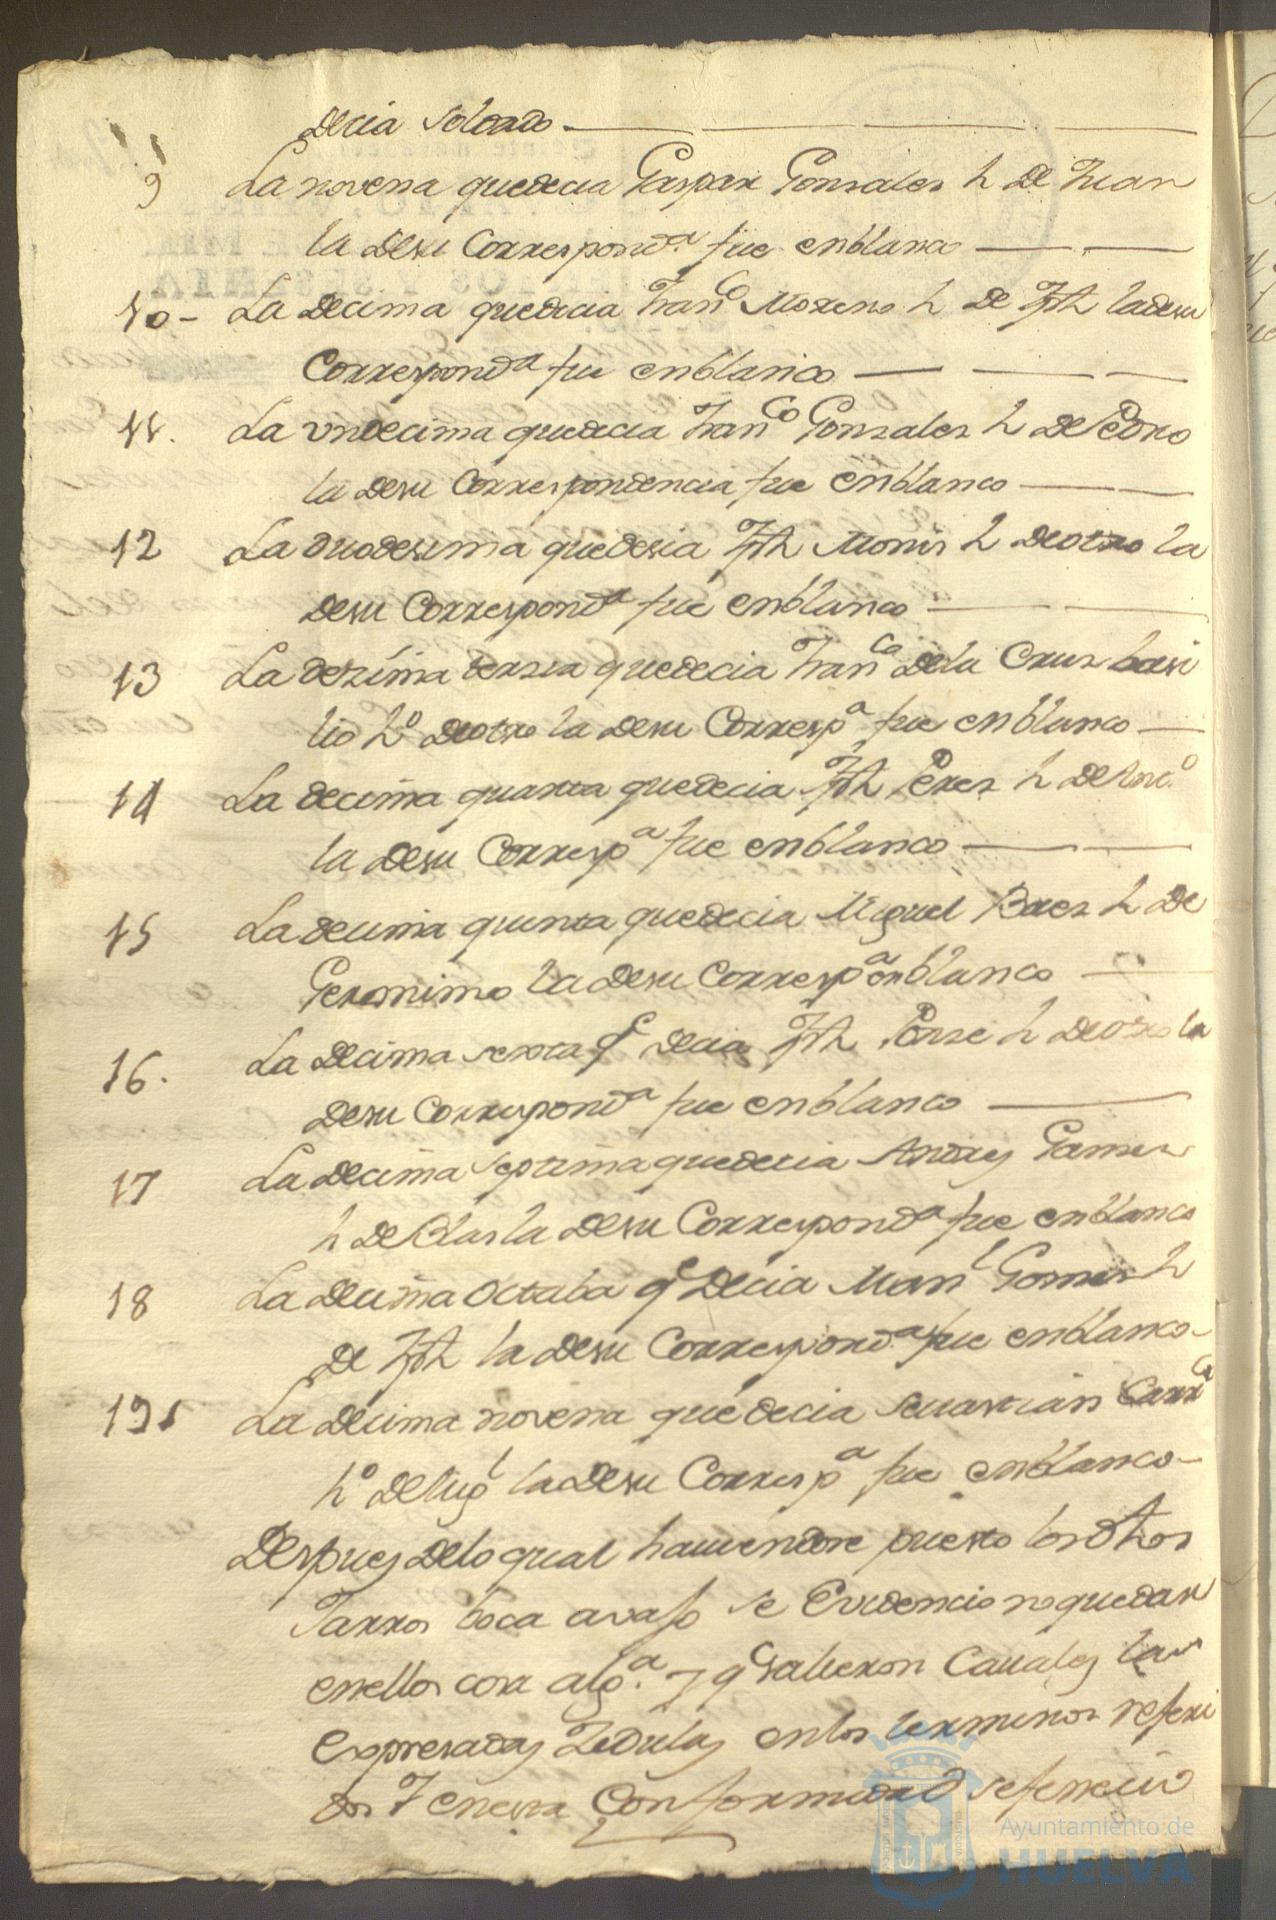 decia soldado
9 La novena quedecia Gaspar Gonsales h de Juan
la desu Correspond.ª fue enblanco
10 - La decima quedecia Fran.co Moreno h de Jph ladesu
Correspond.ª fue enblanco
11. La undecima quedecia Fran.co Gonsales h de Pedro
la desu Correspondencia fue enblanco
12 La duodesima quedesia Jph Monis h deotro la
desu Correspond.ª fue enblanco
13 La desima tersia quedecia Fran.co dela Crus basi
lio h.º deotro la desu Corresp.ª fue enblanco
14 La decima quarta quedecia Jph Peres h de
la desu Corresp.ª fue enblanco
15 La decima quinta quedecia Miguel Baes h de
Geronimo la desu Corresp.ª enblanco
16. La decima sexta q.e decia Jph h deotro la
desu Correspond.ª fue enblanco
17 La decima septima quedecia Andres
h de Blas la desu Correspond.ª fue enblanco
18 La decima octaba q.e decia Man.l Gomes h
de Jph la desu Correspond.ª fue enblanco
19 La decima novena quedecia Sevastian
h.º de la desu Corresp.ª fue enblanco
Despues delo qual haviendose puesto los dhos
Jarros boca avajo se Evidencio noquedar
enellos cosa alg.ª y q.e salieron Cavales las
expresadas Zedulas enlos terminos referi
dos Y enesta Conformidad sefenecio
Ayuntamiento de
HUELVA